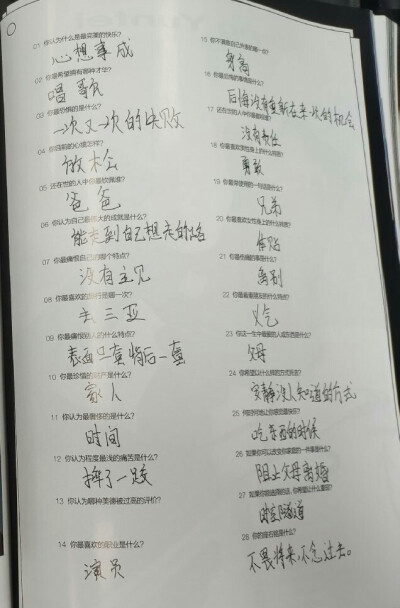 01 你认为什么是最完美的快乐?
心想事成
02 你最希望拥有哪种才华?
唱歌
03 你最恐惧的是什么?
一次又一次的失败
04 你目前的心境怎样?
放不会
05 还在世的人中你最钦佩谁?
爸爸
06 你认为自己最伟大的成就是什么?
能走到自己想走的路
07 你最痛恨自己的哪个特点?
没有主见
08 你最喜欢的旅行是哪一次?
去三亚
09 你最痛恨别人的什么特点?
表面一套背后一套
10 你最珍惜的财产是什么?
家人
11 你认为最奢侈的是什么?
时间
12 你认为程度最浅的痛苦是什么?
摔了一跤
13 你认为哪种美德被过高的评价?
14 你最喜欢的职业是什么?
演员
15 你不满意自己外表的哪一点?
身高
16 你最后悔的事情是什么?
后悔没有重新在来一次的机会
17 还在世的人中你最鄙视谁?
没有责任
18 你最喜欢男性身上的什么特质?
勇敢
19 你最常使用的一句话是什么?
兄弟
20 你最喜欢女性身上的什么特质?
体贴
21 你最伤痛的事是什么?
离别
22 你最看重朋友的什么特质?
义气
23 你这一生中最爱的人或东西是什么?
父母
24 你希望以什么样的方式死去?
安静没人知道的方式
25 何时何地让你感觉最快乐?
吃东西的时候
26 如果你可以改变你家庭的一件事是什么?
阻止父母离婚
27 如果你能选择的话,你希望让什么重现?
时空隧道
28 你的座右铭是什么?
不畏将来,不念过去。